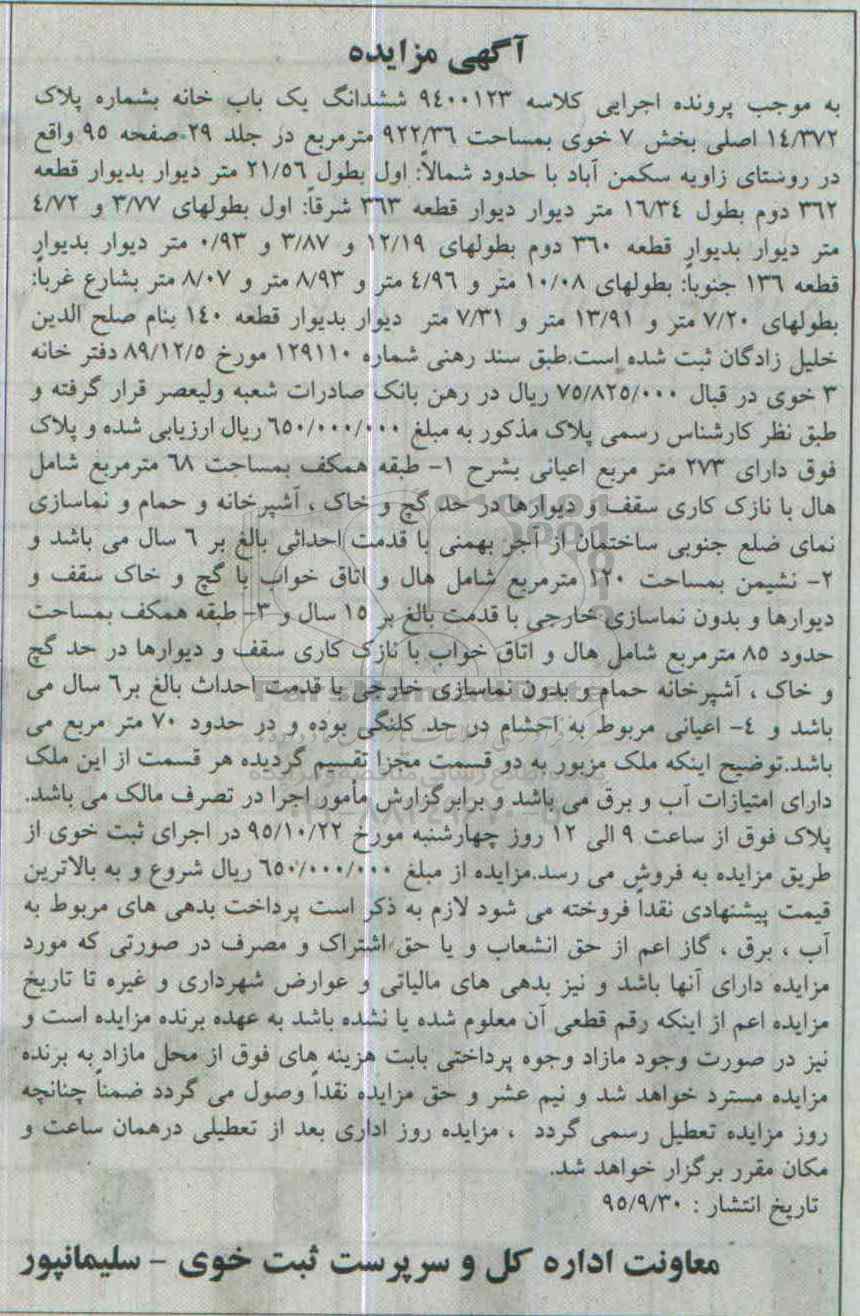 آگهی مزایده
به موجب پرونده اجرایی کلاسه ۹٤۰۰۱۲۳ ششدانگ یک باب خانه بشماره پلاک
۱٤/۳۷۲ اصلی بخش ۷ خوی بمساحت ۹۲۲/۳٦ مترمربع در جلد ۲۹ صفحه ۹۵ واقع
در روستای زاویه سکمن آباد با حدود شمالاً: اول بطول ۲۱/۵٦ متر دیوار بدیوار قطعه
۳٦۲ دوم بطول ۱٦/۳٤ متر دیوار دیوار قطعه ۳٦۳ شرقاً: اول بطولهای ۳/۷۷ و ٤/۷۲
متر دیوار بدیوار قطعه ۳٦۰ دوم بطولهای ۱۲/۱۹ و ۳/۸۷ و ۰/۹۳ متر دیوار بدیوار
قطعه ۱۳٦ جنوباً: بطولهای ۱۰/۰۸ متر و ٤/۹٦ متر و ۸/۹۳ متر و ۸/۰۷ متر بشارع غرباً:
بطولهای ۷/۲۰ متر و ۱۳/۹۱ متر و ۷/۳۱ متر دیوار بدیوار قطعه ۱٤۰ بنام صلح الدین
خلیل زادگان ثبت شده است.طبق سند رهنی شماره ۱۲۹۱۱۰ مورخ ۸۹/۱۲/۵ دفتر خانه
۳ خوی در قبال ۷۵/۸۲۵/۰۰۰ ریال در رهن بانک صادرات شعبه ولیعصر قرار گرفته و
طبق نظر کارشناس رسمی پلاک مذکور به مبلغ ٦۵۰/۰۰۰/۰۰۰ ریال ارزیابی شده و پلاک
فوق دارای ۲۷۳ متر مربع اعیانی بشرح ۱- طبقه همکف بمساحت ٦۸ مترمربع شامل
هال با نازک کاری سقف و دیوارها در حد گچ و خاک ، آشپرخانه و حمام و نماسازی
نمای ضلع جنوبی ساختمان از آجر بهمنی با قدمت احداثی بالغ بر ٦ سال می باشد و
۲- نشیمن بمساحت ۱۲۰ مترمربع شامل هال و اتاق خواب با گچ و خاک سقف و
دیوارها و بدون نماسازی خارجی با قدمت بالغ بر ۱۵ سال و ۳- طبقه همکف بمساحت
حدود ۸۵ مترمربع شامل هال و اتاق خواب با نازک کاری سقف و دیوارها در حد گچ
و خاک ، آشپرخانه حمام و بدون نماسازی خارجی با قدمت احداث بالغ بر٦ سال می
باشد و ٤- اعیانی مربوط به احشام در حد کلنگی بوده و در حدود ۷۰ متر مربع می
باشد.توضیح اینکه ملک مزبور به دو قسمت مجزا تقسیم گردیده هر قسمت از این ملک
دارای امتیازات آب و برق می باشد و برابرگزارش مأمور اجرا در تصرف مالک می باشد.
پلاک فوق از ساعت ۹ الی ۱۲ روز چهارشنبه مورخ ۹۵/۱۰/۲۲ در اجرای ثبت خوی از
طریق مزایده به فروش می رسد.مزایده از مبلغ ٦۵۰/۰۰۰/۰۰۰ ریال شروع و به بالاترین
قیمت پیشنهادی نقداً فروخته می شود لازم به ذکر است پرداخت بدهی های مربوط به
آب ، برق ، گاز اعم از حق انشعاب و یا حق اشتراک و مصرف در صورتی که مورد
مزایده دارای آنها باشد و نیز بدهی های مالیاتی و عوارض شهرداری و غیره تا تاریخ
مزایده اعم از اینکه رقم قطعی آن معلوم شده یا نشده باشد به عهده برنده مزایده است و
نیز در صورت وجود مازاد وجوه پرداختی بابت هزینه های فوق از محل مازاد به برنده
مزایده مسترد خواهد شد و نیم عشر و حق مزایده نقداً وصول می گردد ضمناً چنانچه
روز مزایده تعطیل رسمی گردد ، مزایده روز اداری بعد از تعطیلی درهمان ساعت و
مکان مقرر برگزار خواهد شد.
تاریخ انتشار : ۹۵/۹/۳۰
معاونت اداره کل و سرپرست ثبت خوی - سلیمانپور